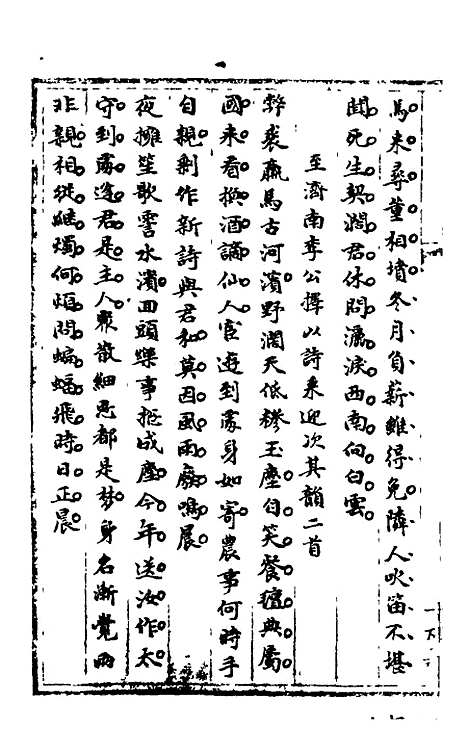 馬來尋董相墳冬月負薪雖得免隣人吹笛不堪
聞死生契濶君休問灑淚西南向白雲
至濟南李公擇以詩來迎次其韻二首
弊裘羸馬古河濱野濶天低糝玉塵自笑餐氊典屬
國來看換酒謫仙人宦遊到處身如寄農事何時手
自親剩作新詩與君和莫因風雨廢鳴晨
夜擁笙歌霅水濱回頭樂事揔成塵今年送汝作太
守到處逢君是主人聚散細思都是夢身名漸覺兩
非親相從繼燭何須問蝙蝠飛時日正晨